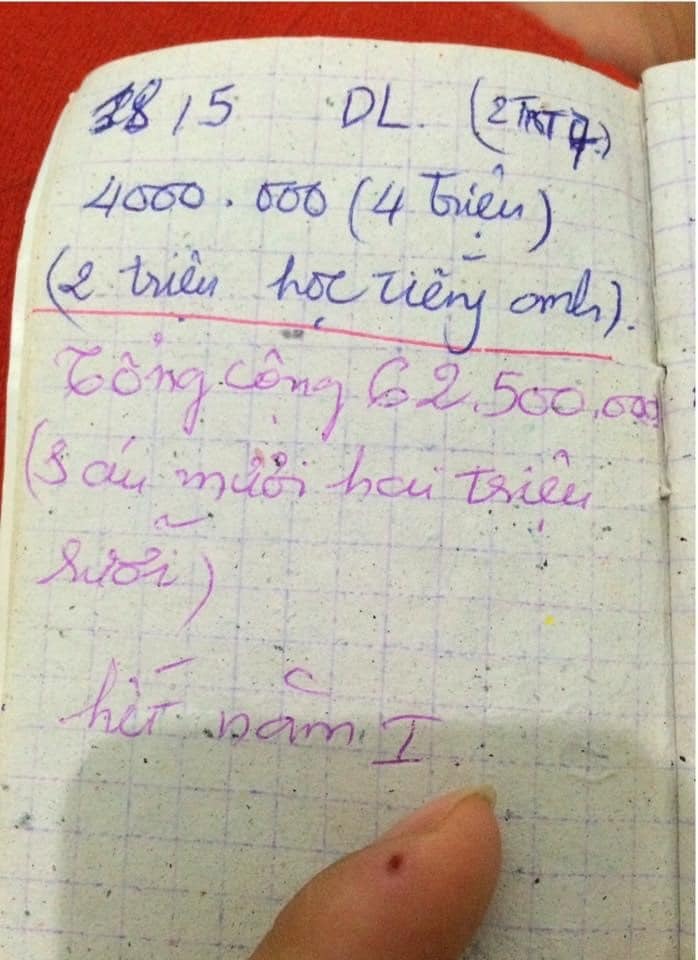 18/5 DL. (2
4000.000 (4 Triệu)
(2 triệu học tiếng anh).
Tổng cộng 62.500.000
(Sáu mươi hai triệu
rưỡi)
hết năm I